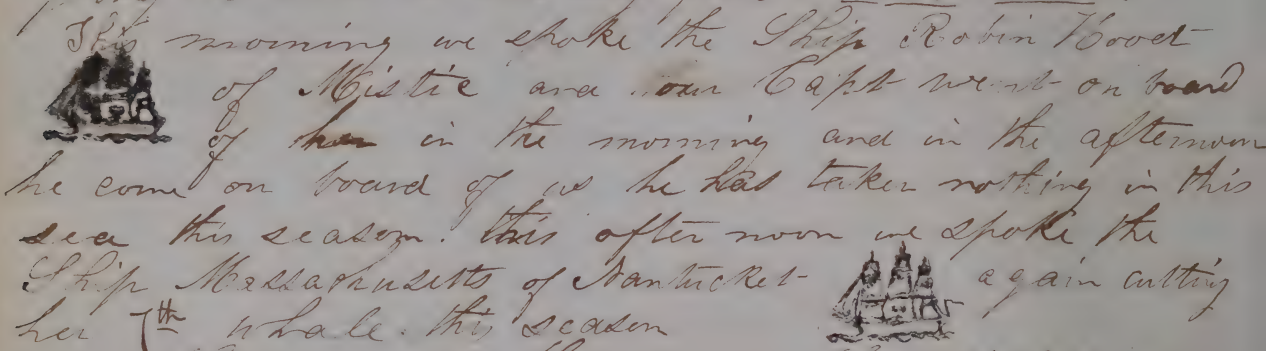 This morning we spoke the Ship Robin Hood
of Mistic and our Capt went on board
of her in the morning and in the afternoon
he come on board of us he has taken nothing in this
sea this season. this after noon we spoke the
Ship Massachusetts of Nantucket again cutting
her 7th whale. this season